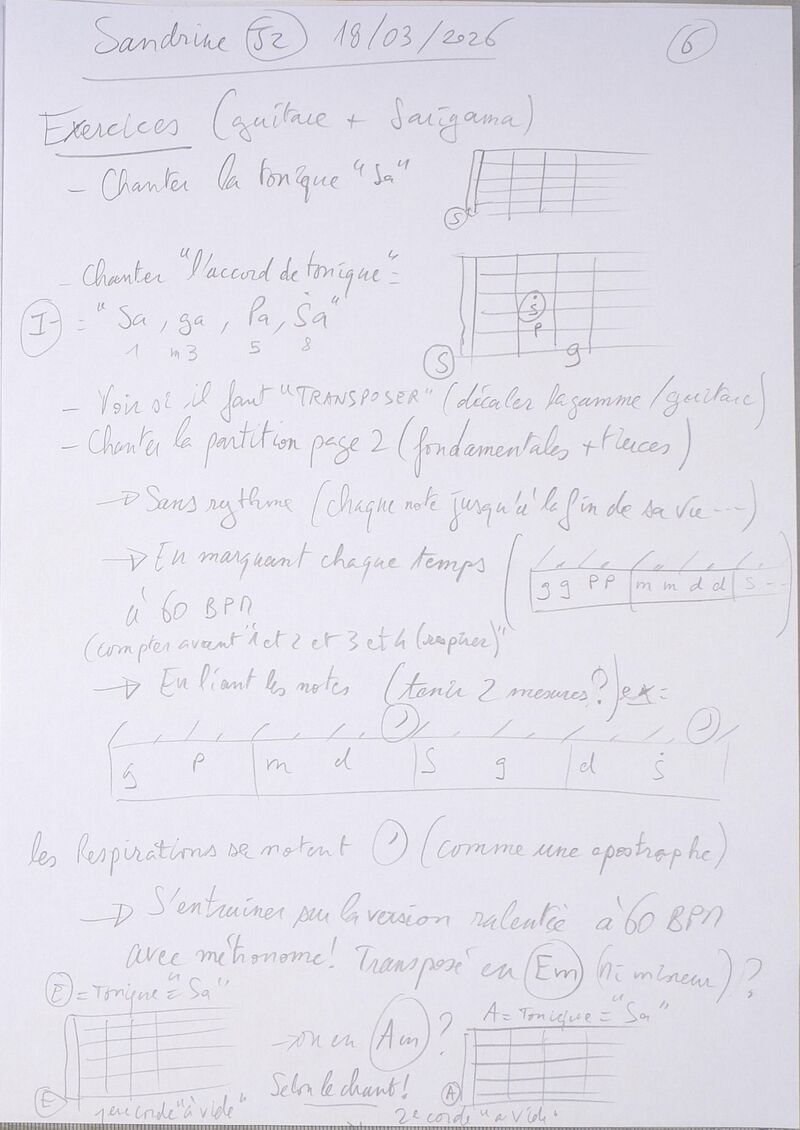 Sandrine 52 18/03/2026 6
Exercices (guitare + Sarigama)
- Chanter la tonique "Sa"
S
- Chanter "l'accord de tonique" =
I- = "Sa, ga, Pa, Ṡa"
1 m3 5 8
ṡ
P
g
S
- Voir si il faut "TRANSPOSER" (décaler la gamme / guitare)
- Chanter la partition page 2 (fondamentales + tierces)
→ Sans rythme (chaque note jusqu'à la fin de sa vie ...)
→ En marquant chaque temps
g g P P | m m d d | S - -
à 60 BPM
(compter avant "1 et 2 et 3 et 4 (respirer)"
→ En liant les notes (tenir 2 mesures?) ex =
g P | m d | S g | d ṡ
les Respirations se notent ' (comme une apostrophe)
→ S'entrainer sur la version ralentie à 60 BPM
avec métronome! Transposé en Em (mi mineur)?
E = Tonique = "Sa"
E
1ere corde "à vide"
→ ou en Am?
Selon le chant!
A = Tonique = "Sa"
A
2e corde "à vide"